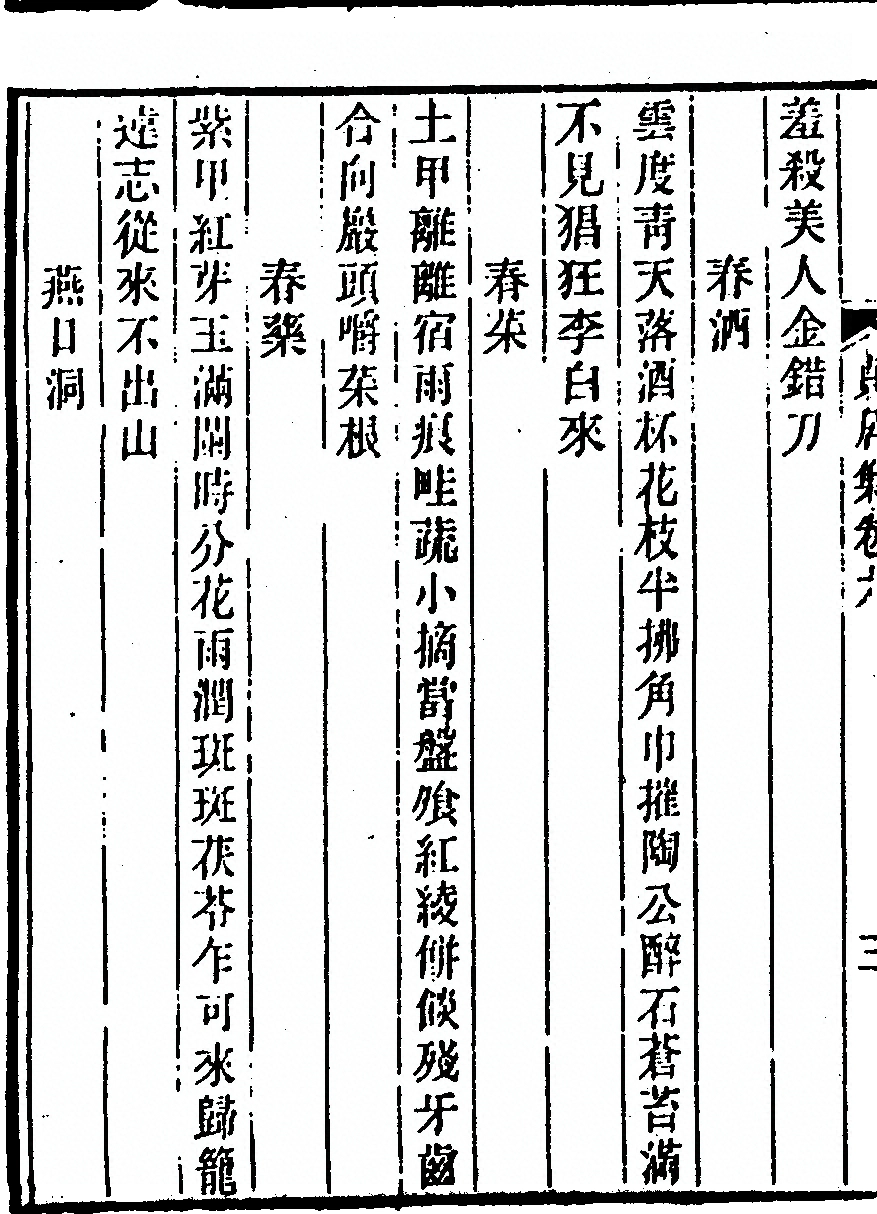 羞殺美人金錯刀
春酒
雲度青天落酒杯花枝半拂角巾摧陶公醉石蒼苔滿
不見猖狂李白來
春菜
土甲離離宿雨痕畦蔬小摘當盤飱紅綾餅餤殘牙齒
合向巖頭嚼菜根
春藥
紫甲紅芽玉滿闌時分花雨潤斑斑茯苓乍可來歸籠
遠志從來不出山
燕口洞